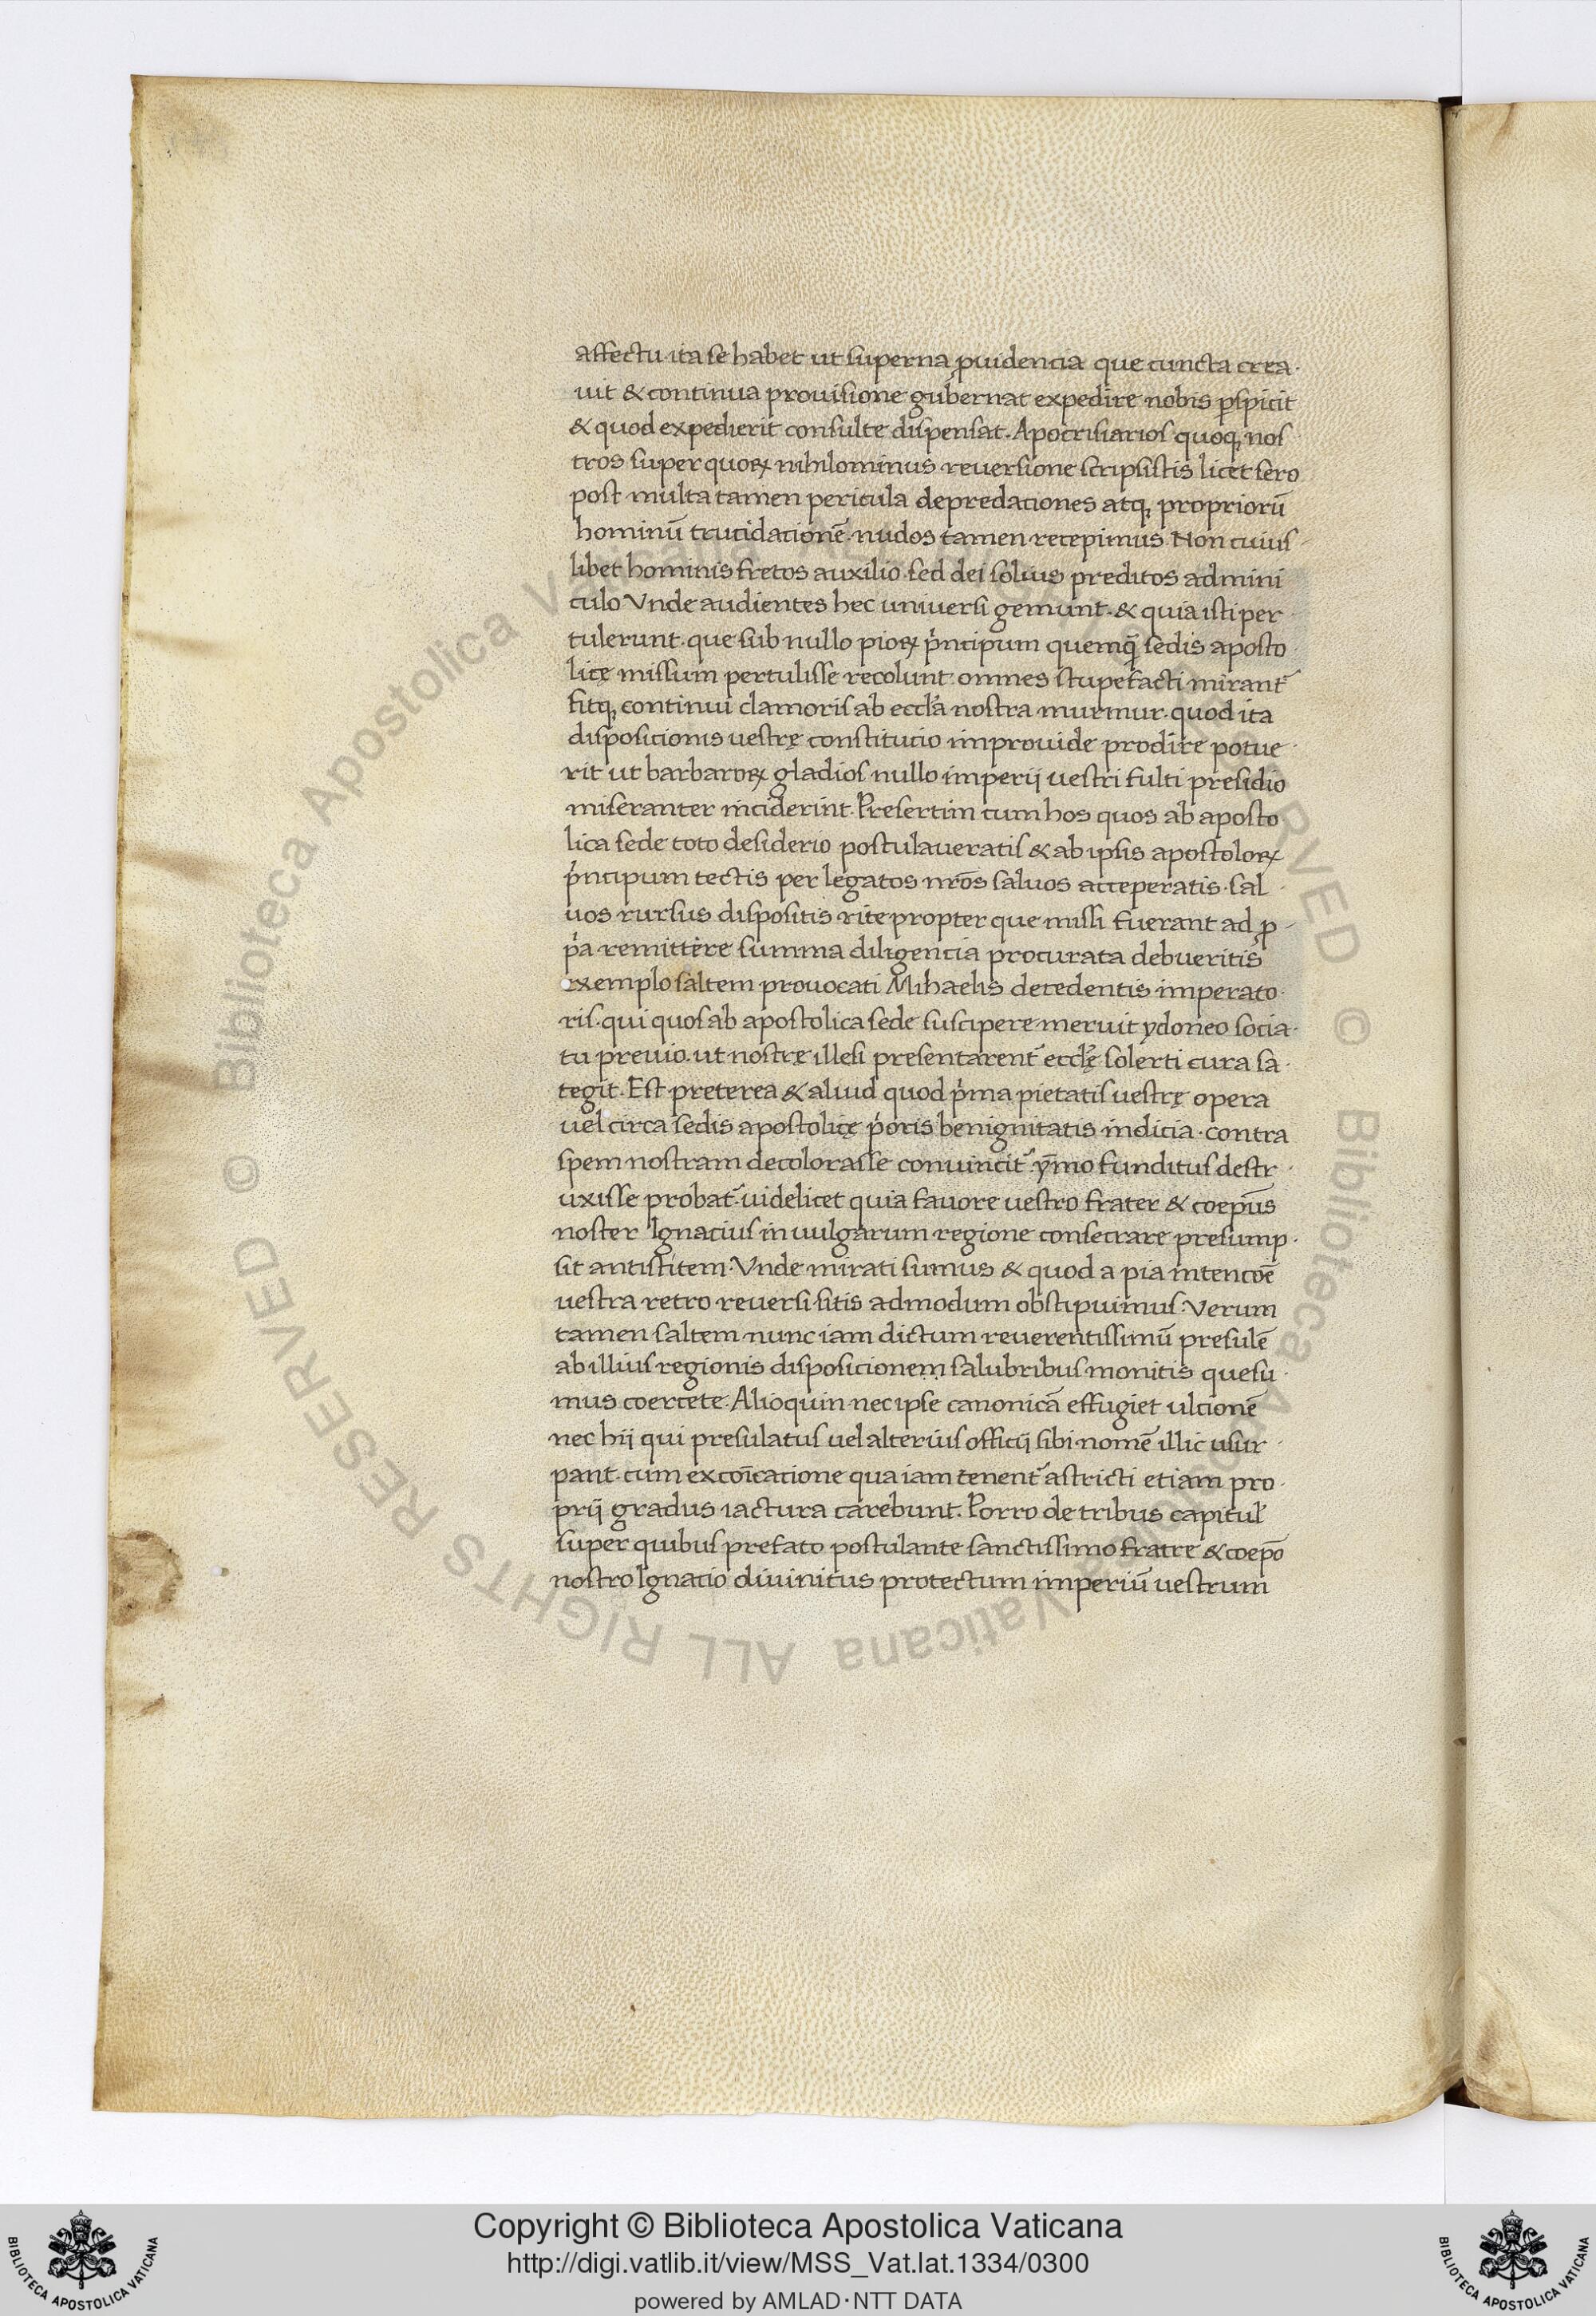 affectu ita se habet ut superna ꝓuidencia que cuncta crea·
uit & continua prouisione gub̓nat expedire nobis ꝑspicit
& quod expedierit consulte dispensat. Apocrisiarios quoq; nos
tros super quoꝝ nihilominus reuersione scripsistis licet sero
post multa tamen pericula depredaciones atq; propriorū
hominū trucidacionē· nudos tamen recepimus Non cuius
libet hominis fretos auxilio· sed dei solius preditos admini
culo Vnde audientes hec uniuersi gemunt· & quia isti per
tulerunt· que sub nullo pioꝝ pͥncipum quemq̄ sedis aposto
licę missum pertulisse recolunt· omnes stupefacti mirant᷑
fitq; continui clamoris ab eccl̓a nostra murmur· quod ita
disposicionis uestrę constitucio improuide prodire potue
rit ut barbaroꝝ gladios nullo imperij uestri fulti presidio
miseranter inciderint. Presertim cum hos quos ab aposto
lica sede toto desiderio postulaueratis & ab ipsis apostoloꝝ
pͥncipum tectis per legatos nr̄os saluos acceperatis· sal
uos rursus dispositis rite propter que missi fuerant ad ꝓ
pͥa remittere summa diligencia procurata debueritis
exemplo saltem prouocati Mihaelis decedentis imperato·
ris· qui quos ab apostolica sede suscipere meruit ydoneo socia·
tu preuio· ut nostrę illesi presentarent᷑ eccl̓ę solerti cura sa·
tegit. Est preterea & aliud quod pͥma pietatis uestrę opera
uel circa sedis apostolicę pͥoris benignitatis indicia· contra
spem nostram decolorasse conuincit᷑· ȳmo funditus destr·
uxisse probat᷑· uidelicet quia fauore uestro frater & coepūs
noster Ignacius in uulgarum regione consecrare presump·
sit antistitem· Vnde mirati sumus & quod a pia intencōe
uestra retro reuersi sitis admodum obstipuimus· Verum
tamen saltem nunc iam dictum reuerentissimū presulē
ab illius regionis disposicionem salubribus monitis quesu·
mus coercete· Alioquin nec ipse canonicā effugiet ulcionē
nec hij qui presulatus uel alterius officij sibi nomē illic usur·
pant· cum excōicatione qua iam tenent᷑ astricti etiam pro·
prij gradus iactura carebunt. Porro de tribus capitul̓
super quibus prefato postulante sanctissimo fratre & coepō
nostro Ignacio diuinitus protectum imperiū uestrum
Copyright © Biblioteca Apostolica Vaticana
http://digi.vatlib.it/view/MSS_Vat.lat.1334/0300
powered by AMLAD·NTT DATA
BIBLIOTECA APOSTOLICA VATICANA
BIBLIOTECA APOSTOLICA VATICANA
© Biblioteca Apostolica Vaticana ALL RIGHTS RESERVED © Biblioteca Apostolica Vaticana ALL RIGHTS RESERVED